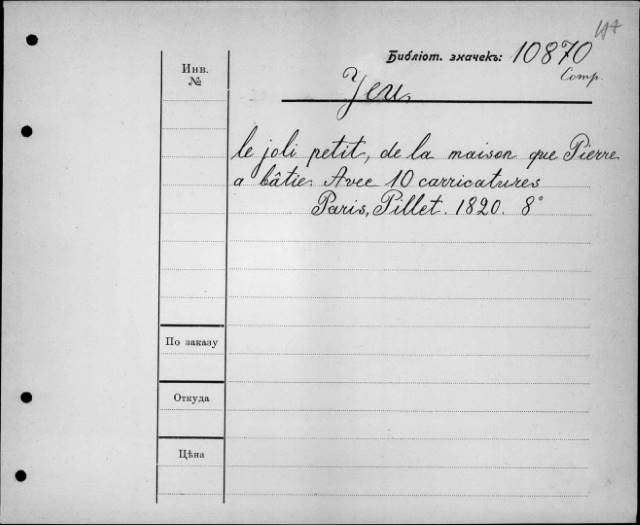 Библіот. значекъ: 10870
Comp.
Инв.
№
Jeu,
le joli petit, de la maison que Pierre
a bâtie. Avec 10 carricatures
Paris, Pillet. 1820. 8°
По заказу
Откуда
Цѣна